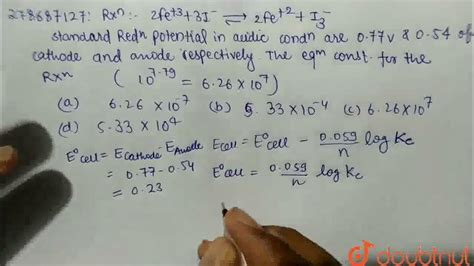 278687127: Rxn :- 2fe+3+3I- ⇌ 2fe+2 + I3-
standard Redn potential in acidic condn are 0.77v & 0.54 of
cathode and anode respectively The eqm const. for the
Rxn (10^7.79 = 6.26 x 10^7)
(a) 6.26 x 10^-7 (b) 5.33 x 10^-4 (c) 6.26 x 10^7
(d) 5.33 x 10^4
E°cell = Ecathode - EAnode Ecell = E°cell - 0.059/n log Kc
= 0.77 - 0.54 E°cell = 0.059/n log Kc
= 0.23
doubtnut